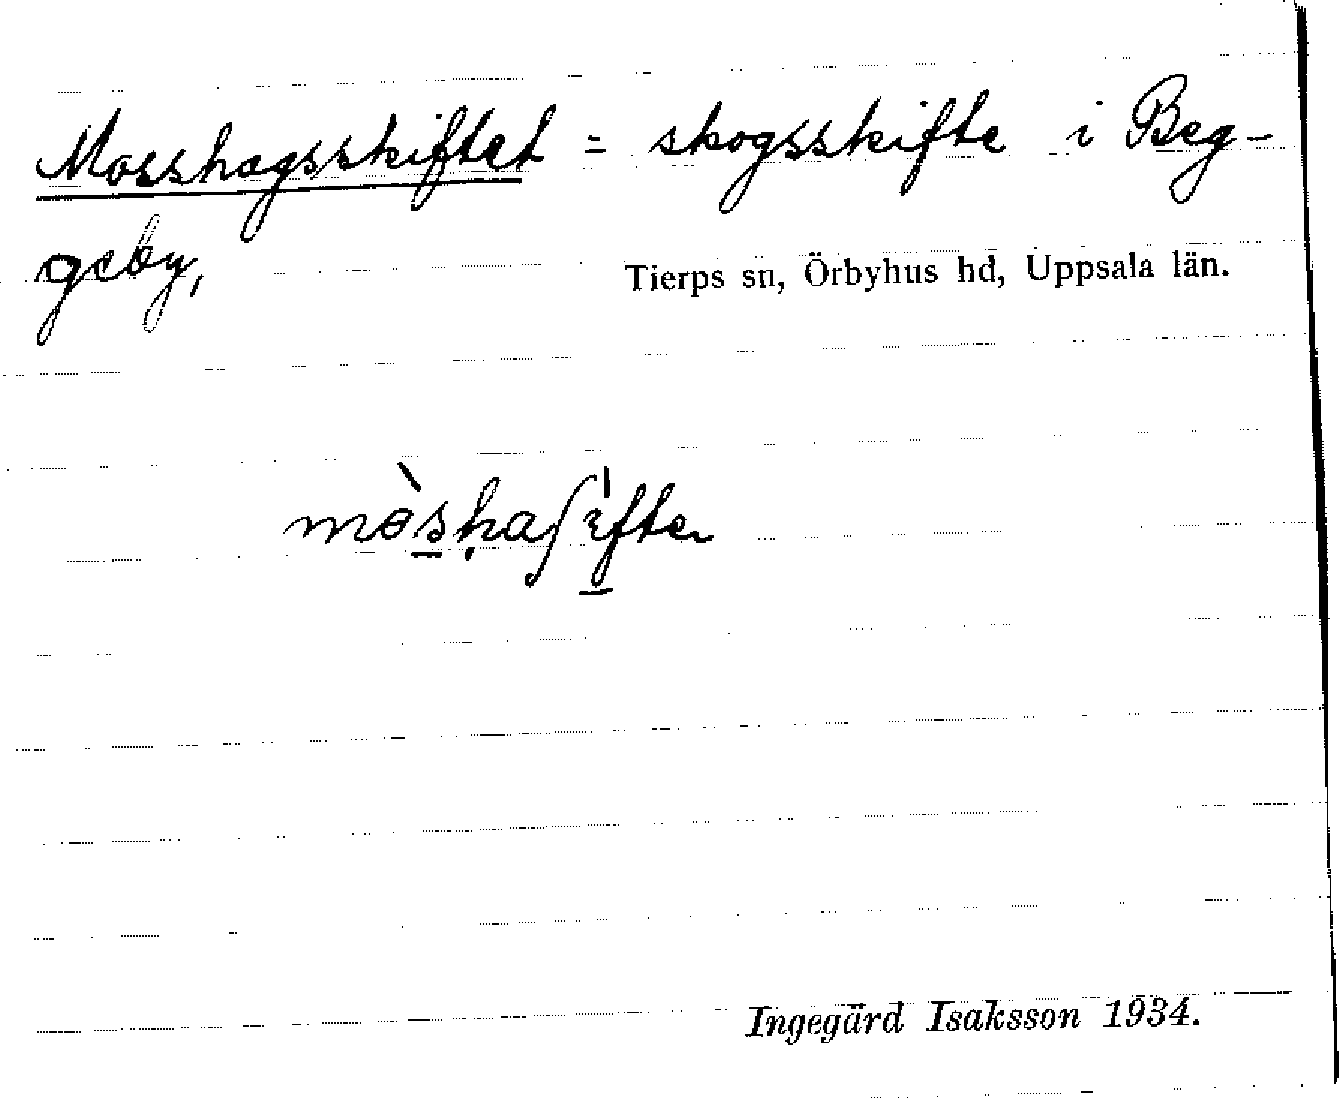 Mosshagsskiftet = skogsskifte i Beg-
geby,
Tierps sn, Örbyhus hd, Uppsala län.
Ingegärd Isaksson 1934.